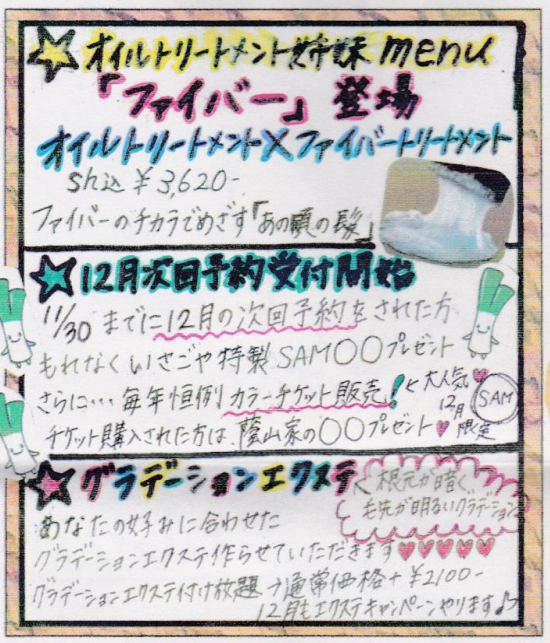 オイルトリートメント姉妹menu
「ファイバー」登場
オイルトリートメント×ファイバートリートメント
sh込 ¥3,620-
ファイバーのチカラでめざす「あの頃の髪」
12月次回予約受付開始
11/30 までに12月の次回予約をされた方
もれなくいさごや特製SAM○○プレゼント
さらに…毎年恒例カラーチケット販売!
<大人気
12月
限定
SAM
チケット購入された方は、蔭山家の○○プレゼント
グラデーションエクステ
<根元が暗く
毛先が明るいグラデーション
あなたの好みに合わせた
グラデーションエクステ作らせていただきます♥♥♥♥♥
グラデーションエクステ付け放題→通常価格+¥2100-
12月もエクステキャンペーンやります♪